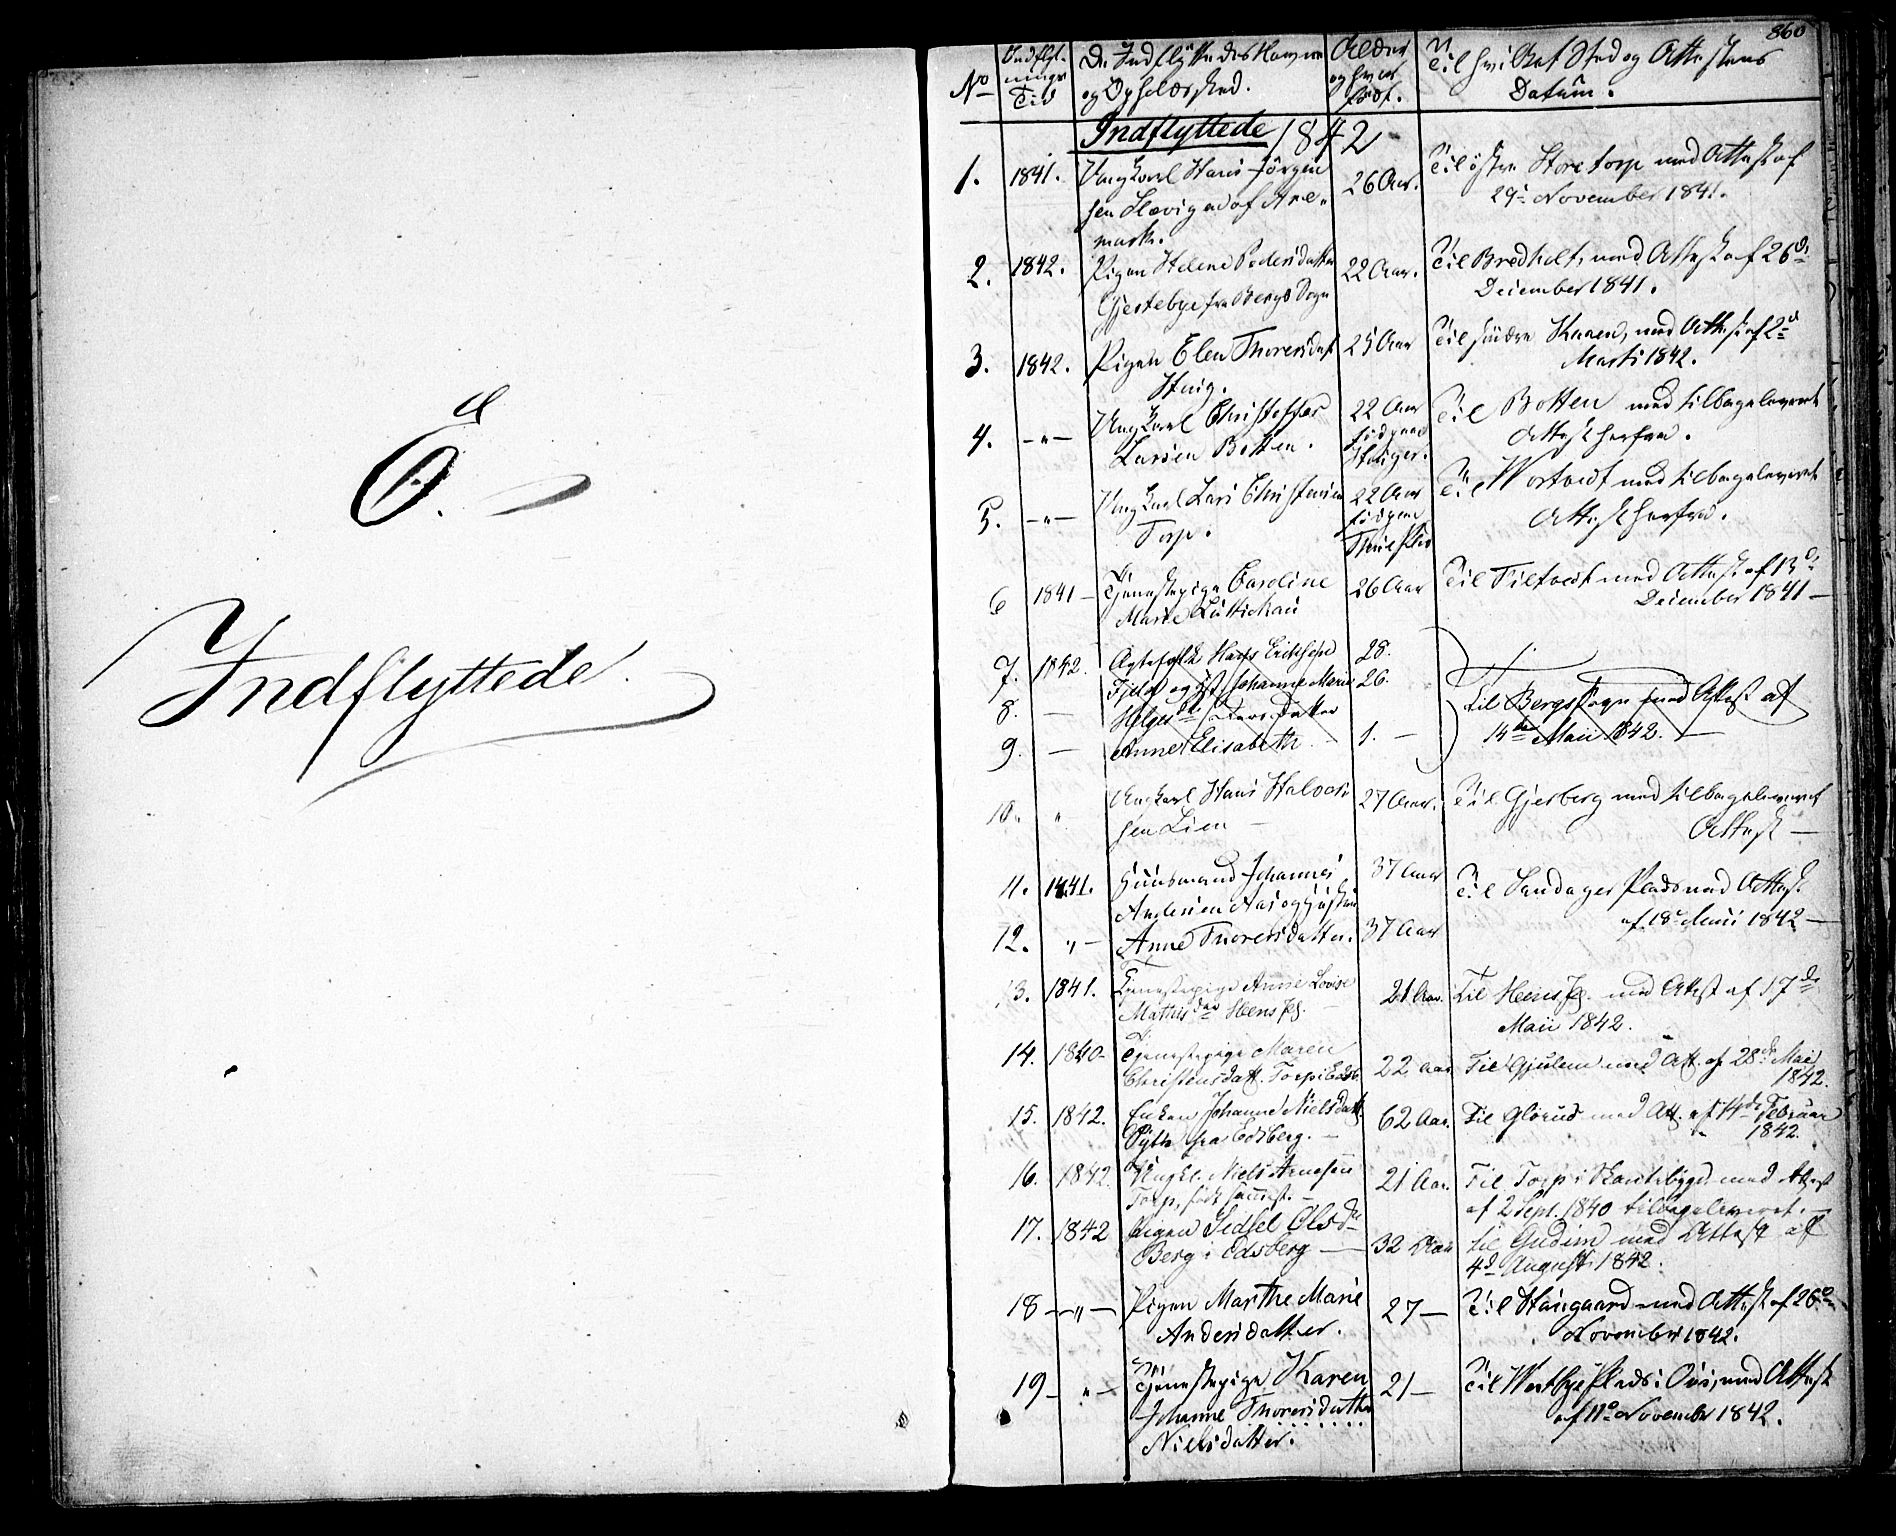 Indflyttede
860
No
Indflyt-
nings
Tid
De Indflyttedes Navne
og Opholdssted.
Alder
og hvor
født.
Til hvilket Sted og Attestens
Datum.
Indflyttede 1842
1. 1841. Ungkarl Hans Jörgen
sen af Are-
mark. 26 Aar. Til östre Storetorp med Attest af
29de November 1841.
2. 1842. Pigen Helene Pedersdatter
Gjestebye fra Bergs Sogn 22 Aar. Til Bredholt, med Attest af 26de
December 1841.
3. 1842. Pigen Elen Thoresdatt 25 Aar Til söndre med Attest af 2d
Marti 1842.
4. -"- Ungkarl Christoffer
Larsen Botten. 22 Aar
föd paa
Til Botten med tilbageleveret
Attest herfra.
5. -"- Ungkarl Lars Christensen
Torp. 22 Aar
föd paa
Til Wortvedt med tilbageleveret
Attest herfra.
6 1841- Tjenestepige Caroline
Marie 26 Aar Til Tiltvedt med Attest af 13de
December 1841-
7. 1842. Ægtefolk Hans Erichsen 28.
8. - Johanne Marie 26.
Larsdatter
9. - Anne Elisabeth. - 1. - til Bergs Sogn med Attest af
14de Maii 1842. -
10. " Ungkarl Hans Halvor-
sen Lien - 27 Aar. Til Gjerberg med tilbageleveret
Attest -
11. 1841. Huusmand Johannes
Andersen Aas og Hustrue 37 Aar Til Sandager Plads med Attest
af 18de Maii 1842-
12. " - Anne Thoresdatter. 37 Aar
13. 1841. Tjenestepige Anne Lovise
Mathisdtr 21 Aar. Til med Attest af 17de
Maii 1842.
14. 1840- Tjenestepige Maren
Christensdatt. Torp i Edsb. 22 Aar Til Gjulem med Att. af 28de Maii
1842.
15. 1842. Enken Johanne Nielsdatt.
fra Edsberg. - 62 Aar. Til Glorud med Att. af 14de Februar
1842.
16. 1842. Ungk. Niels Arnesen
Torp, födt sammest. - 21 Aar. Til Torp i Skantebygd med Attest
af 2 Sept. 1840 tilbageleveret. -
17. 1842 Pigen Sidsel Olsdtr
Berg i Edsberg - 32 Aar til Gudim med Attest af
4de August 1842.
18 -"- Pigen Marthe Marie
Andersdatter. 27- Til Haugaard med Attest af 26de
November 1842.
19- "- Tjenestepige Karen
Johanne Thoresdatter
Nielsdatter. 21- Til Westbye Plads i Ous, med Attest
af 11de November 1842.